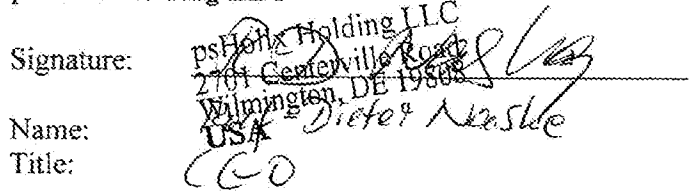 Signature:
psHolix Holding LLC
2701 Centerville Road
Wilmington, DE 19808
USA
Name: Dieter
Title: CEO